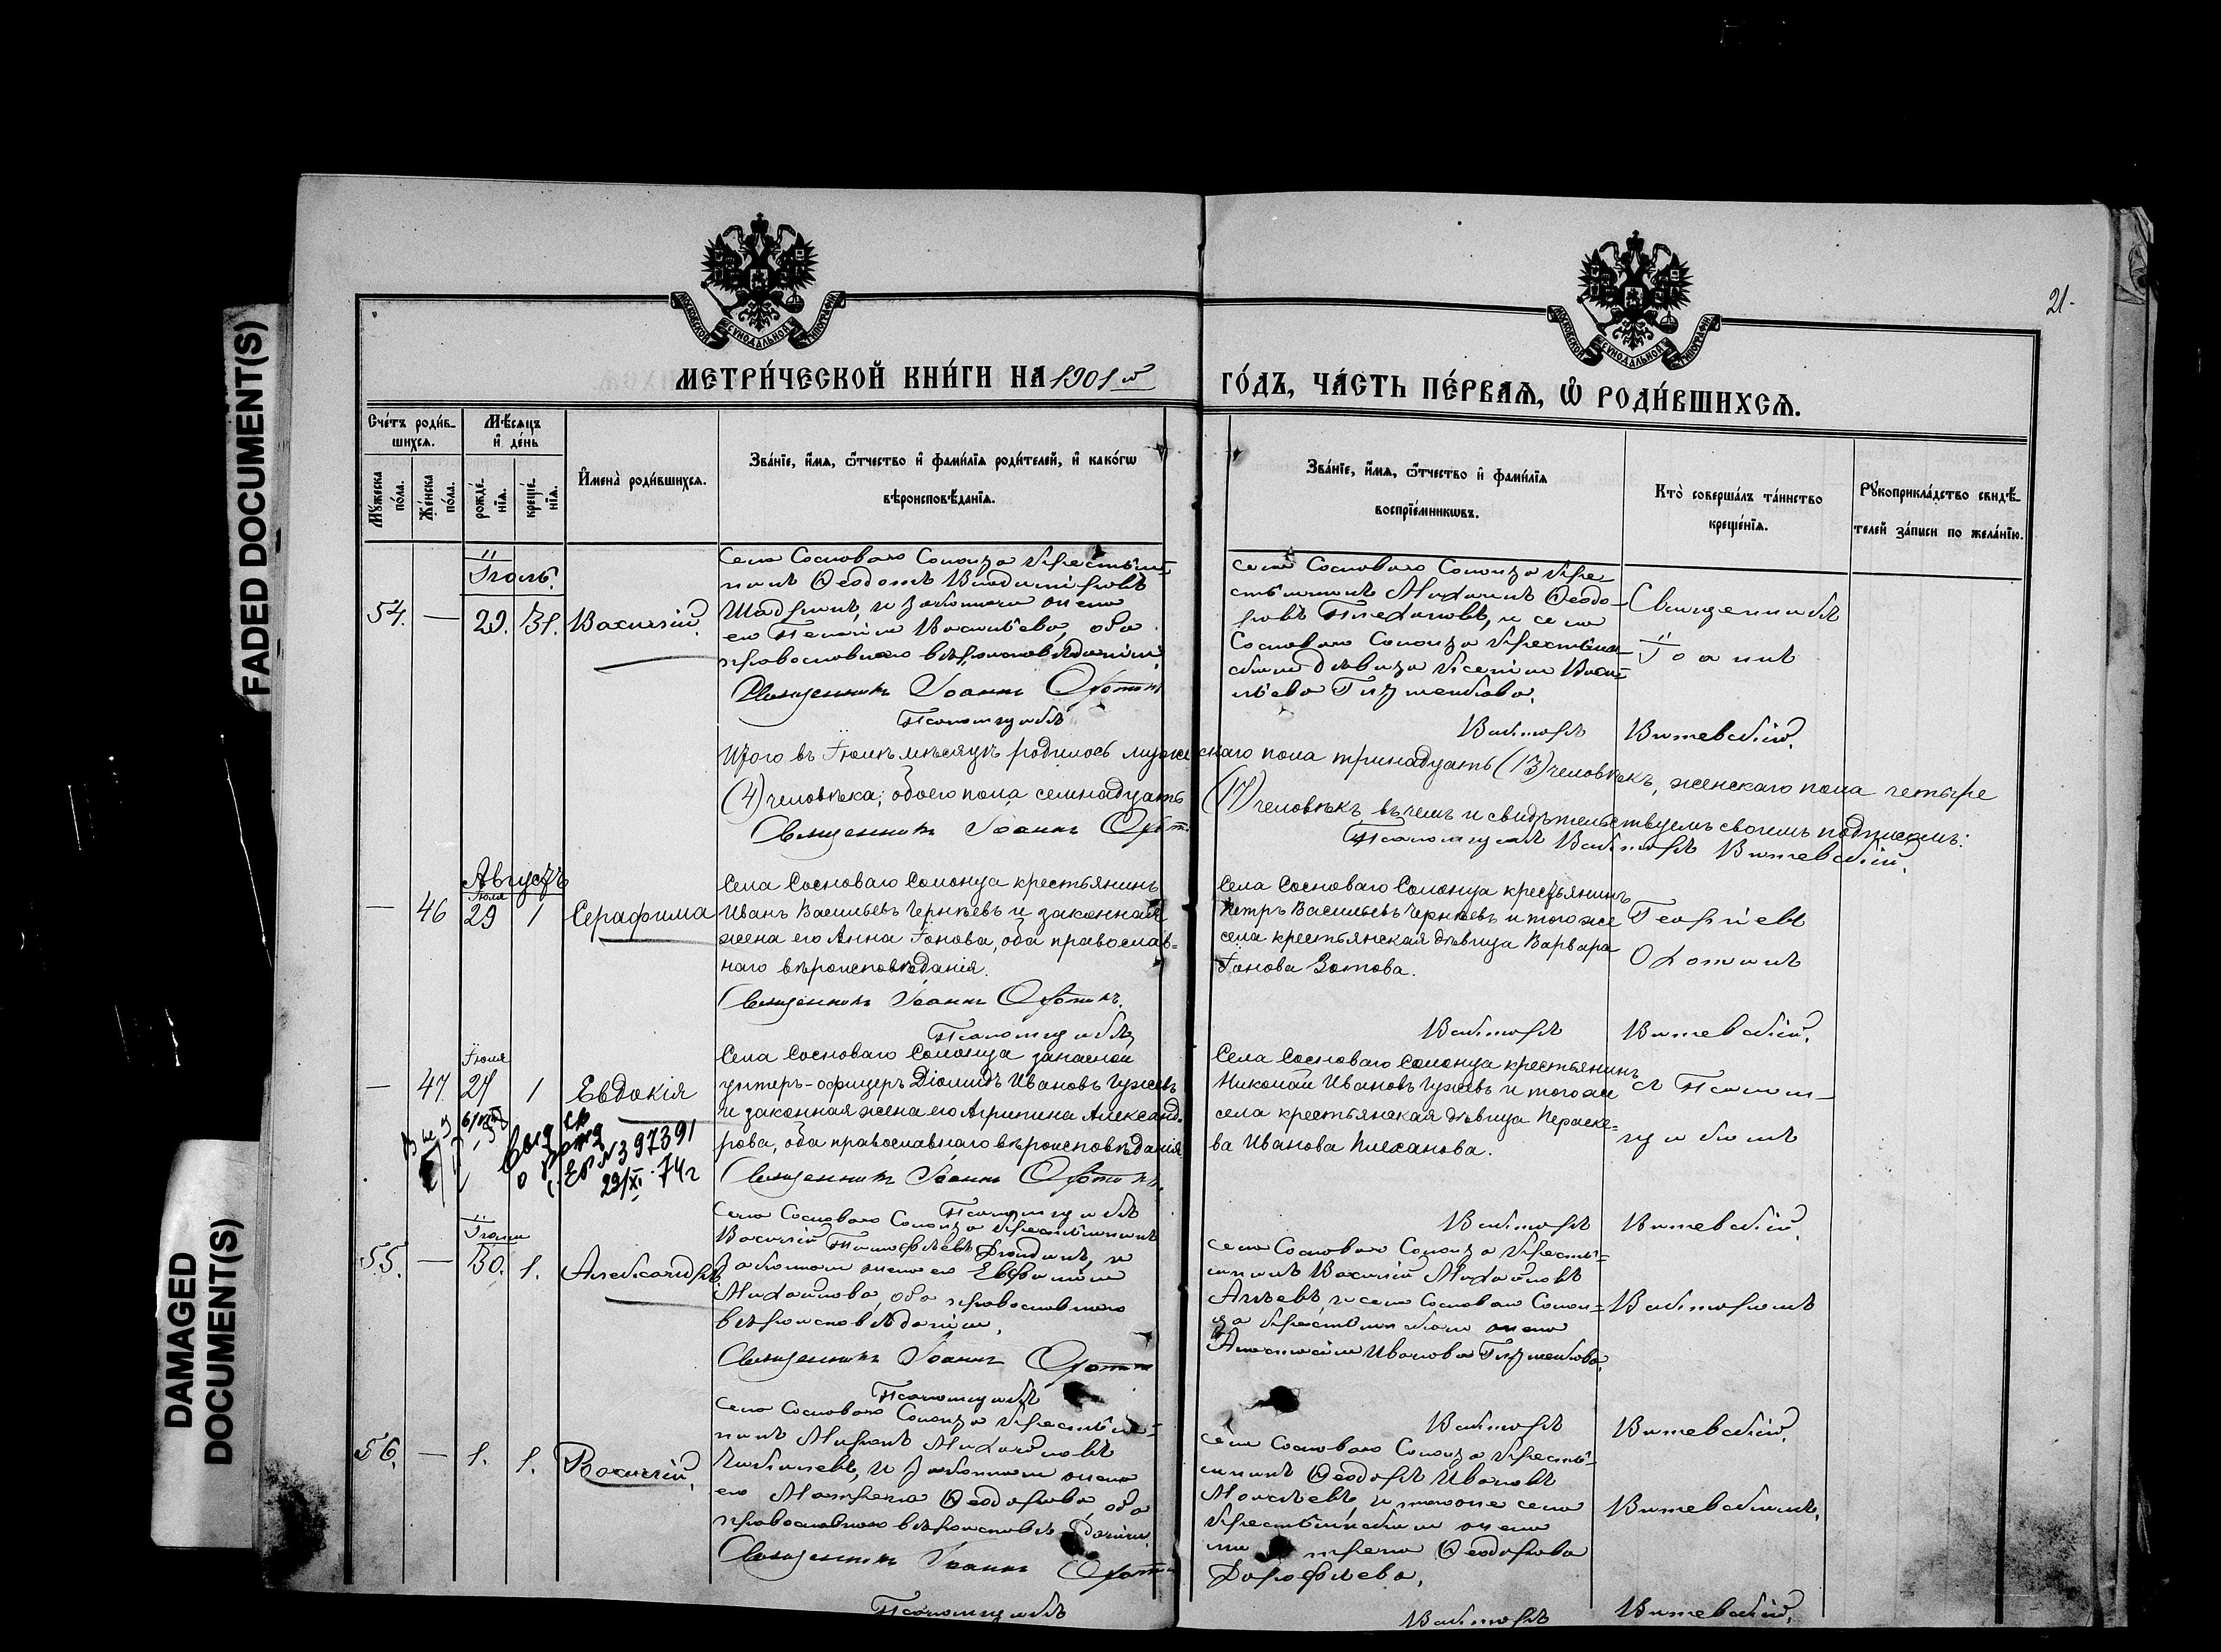 FADED DOCUMENT(S)
DAMAGED
DOCUMENT(S)
21
МОСКОВСКОЙ СѴНОДАЛЬНОЙ ТИПОГРАФІИ
МОСКОВСКОЙ СѴНОДАЛЬНОЙ ТИПОГРАФІИ
МЕТРИ́ЧЕСКОЙ КНИ́ГИ НА 1901 й
ГО́ДЪ, ЧА́СТЬ ПЕ́РВАѦ, Ѡ҆ РОДИ́ВШИХСѦ.
Сче́тъ роди́в-
шихсѧ.
Мꙋ́жеска по́ла.
Же́нска по́ла.
Мѣ́сѧцъ
и҆ де́нь
рожде́-
нїѧ.
креще́-
нїѧ.
И҆мена̀ роди́вшихсѧ.
Зва́нїе, и҆́мѧ, ѻ҆́тчество и҆ фами́лїѧ роди́телей, и҆ како́гѡ
вѣроисповѣ́данїѧ.
Зва́нїе, и҆́мѧ, ѻ҆́тчество и҆ фами́лїѧ
воспрїе́мникѡвъ.
Кто̀ соверша́лъ та́инство
креще́нїѧ.
Рꙋкоприкла́дство свидѣ́-
телей за́писи по жела́нїю.
Іюль.
54. — 29. 31. Василій
Села Сосноваго Солонца крестья-
нинъ Ѳеодотъ Владиміровъ
Шадринъ, и законная жена
его Пелагія Васильева, оба
православнаго вѣроисповѣданія.
Священникъ Іоаннъ Охотинъ
Псаломщикъ
села Сосноваго Солонца кре-
стьянинъ Михаилъ Ѳеодо-
ровъ Плехановъ, и села
Сосноваго Солонца крестьян-
ская дѣвица Ксенія Васи-
льева
Викторъ
Священникъ
Іоаннъ
Витевскій.
Итого въ Іюлѣ мѣсяцѣ родилось мужескаго пола тринадцать (13) человѣкъ, женскаго пола четыре
(4) человѣка; обоего пола семнадцать (17) человѣкъ, въ чемъ и свидѣтельствуемъ своимъ подписомъ:
Священникъ Іоаннъ Охот
Псаломщикъ Викторъ Витевскій.
Августъ
Іюля
— 46 29 1 Серафима
Села Сосноваго Солонца крестьянинъ
Иванъ Васильевъ Чернѣевъ и законная
жена его Анна Іонова, оба православ-
наго вѣроисповѣданія.
Священникъ Іоаннъ Охотинъ.
Псаломщикъ
Села Сосноваго Солонца крестьянинъ
Петръ Васильевъ Чернѣевъ и того же
села крестьянская дѣвица Варвара
Іонова Зотова.
Викторъ
Георгіевъ
Охотинъ
Витевскій.
Іюля
— 47 27 1 Евдокія
Села Сосноваго Солонца запасной
унтеръ-офицеръ Діомидъ Ивановъ Чужевъ
и законная жена его Агрипина Александ-
рова, оба православнаго вѣроисповѣданія
Священникъ Іоаннъ Охотинъ.
Псаломщикъ
Села Сосноваго Солонца крестьянинъ
Николай Ивановъ Чужевъ и того же
села крестьянская дѣвица Параске-
ва Иванова Плеханова.
Викторъ
съ Псалом-
щикомъ
Витевскій.
№ 397391
29/XI 74 г
Іюля
55. — 30. 1. Александръ
Села Сосноваго Солонца крестьянинъ
Василій Тимофѣевъ и
законная жена его Евфимія
Михайлова, оба православнаго
вѣроисповѣданія.
Священникъ Іоаннъ Охотин
Псаломщикъ
села Сосноваго Солонца кресть-
янинъ Василій Михайловъ
и села Сосноваго Солон-
ца крестьянская жена
Анастасія Иванова
Викторъ
Викторомъ
Витевскій.
56. — 1. 1. Василій
Села Сосноваго Солонца крестья-
нинъ Миронъ Михайловъ
и законная жена
его Матрена Ѳеодорова, оба
православнаго вѣроисповѣданія.
Священникъ Іоаннъ Охотин
Псаломщикъ
села Сосноваго Солонца кресть-
янинъ Ѳеодоръ Ивановъ
Моисѣевъ, и тогоже села
крестьянская жена
Ѳеодорова
Дорофѣева.
Викторъ
Витевскимъ.
Витевскій.